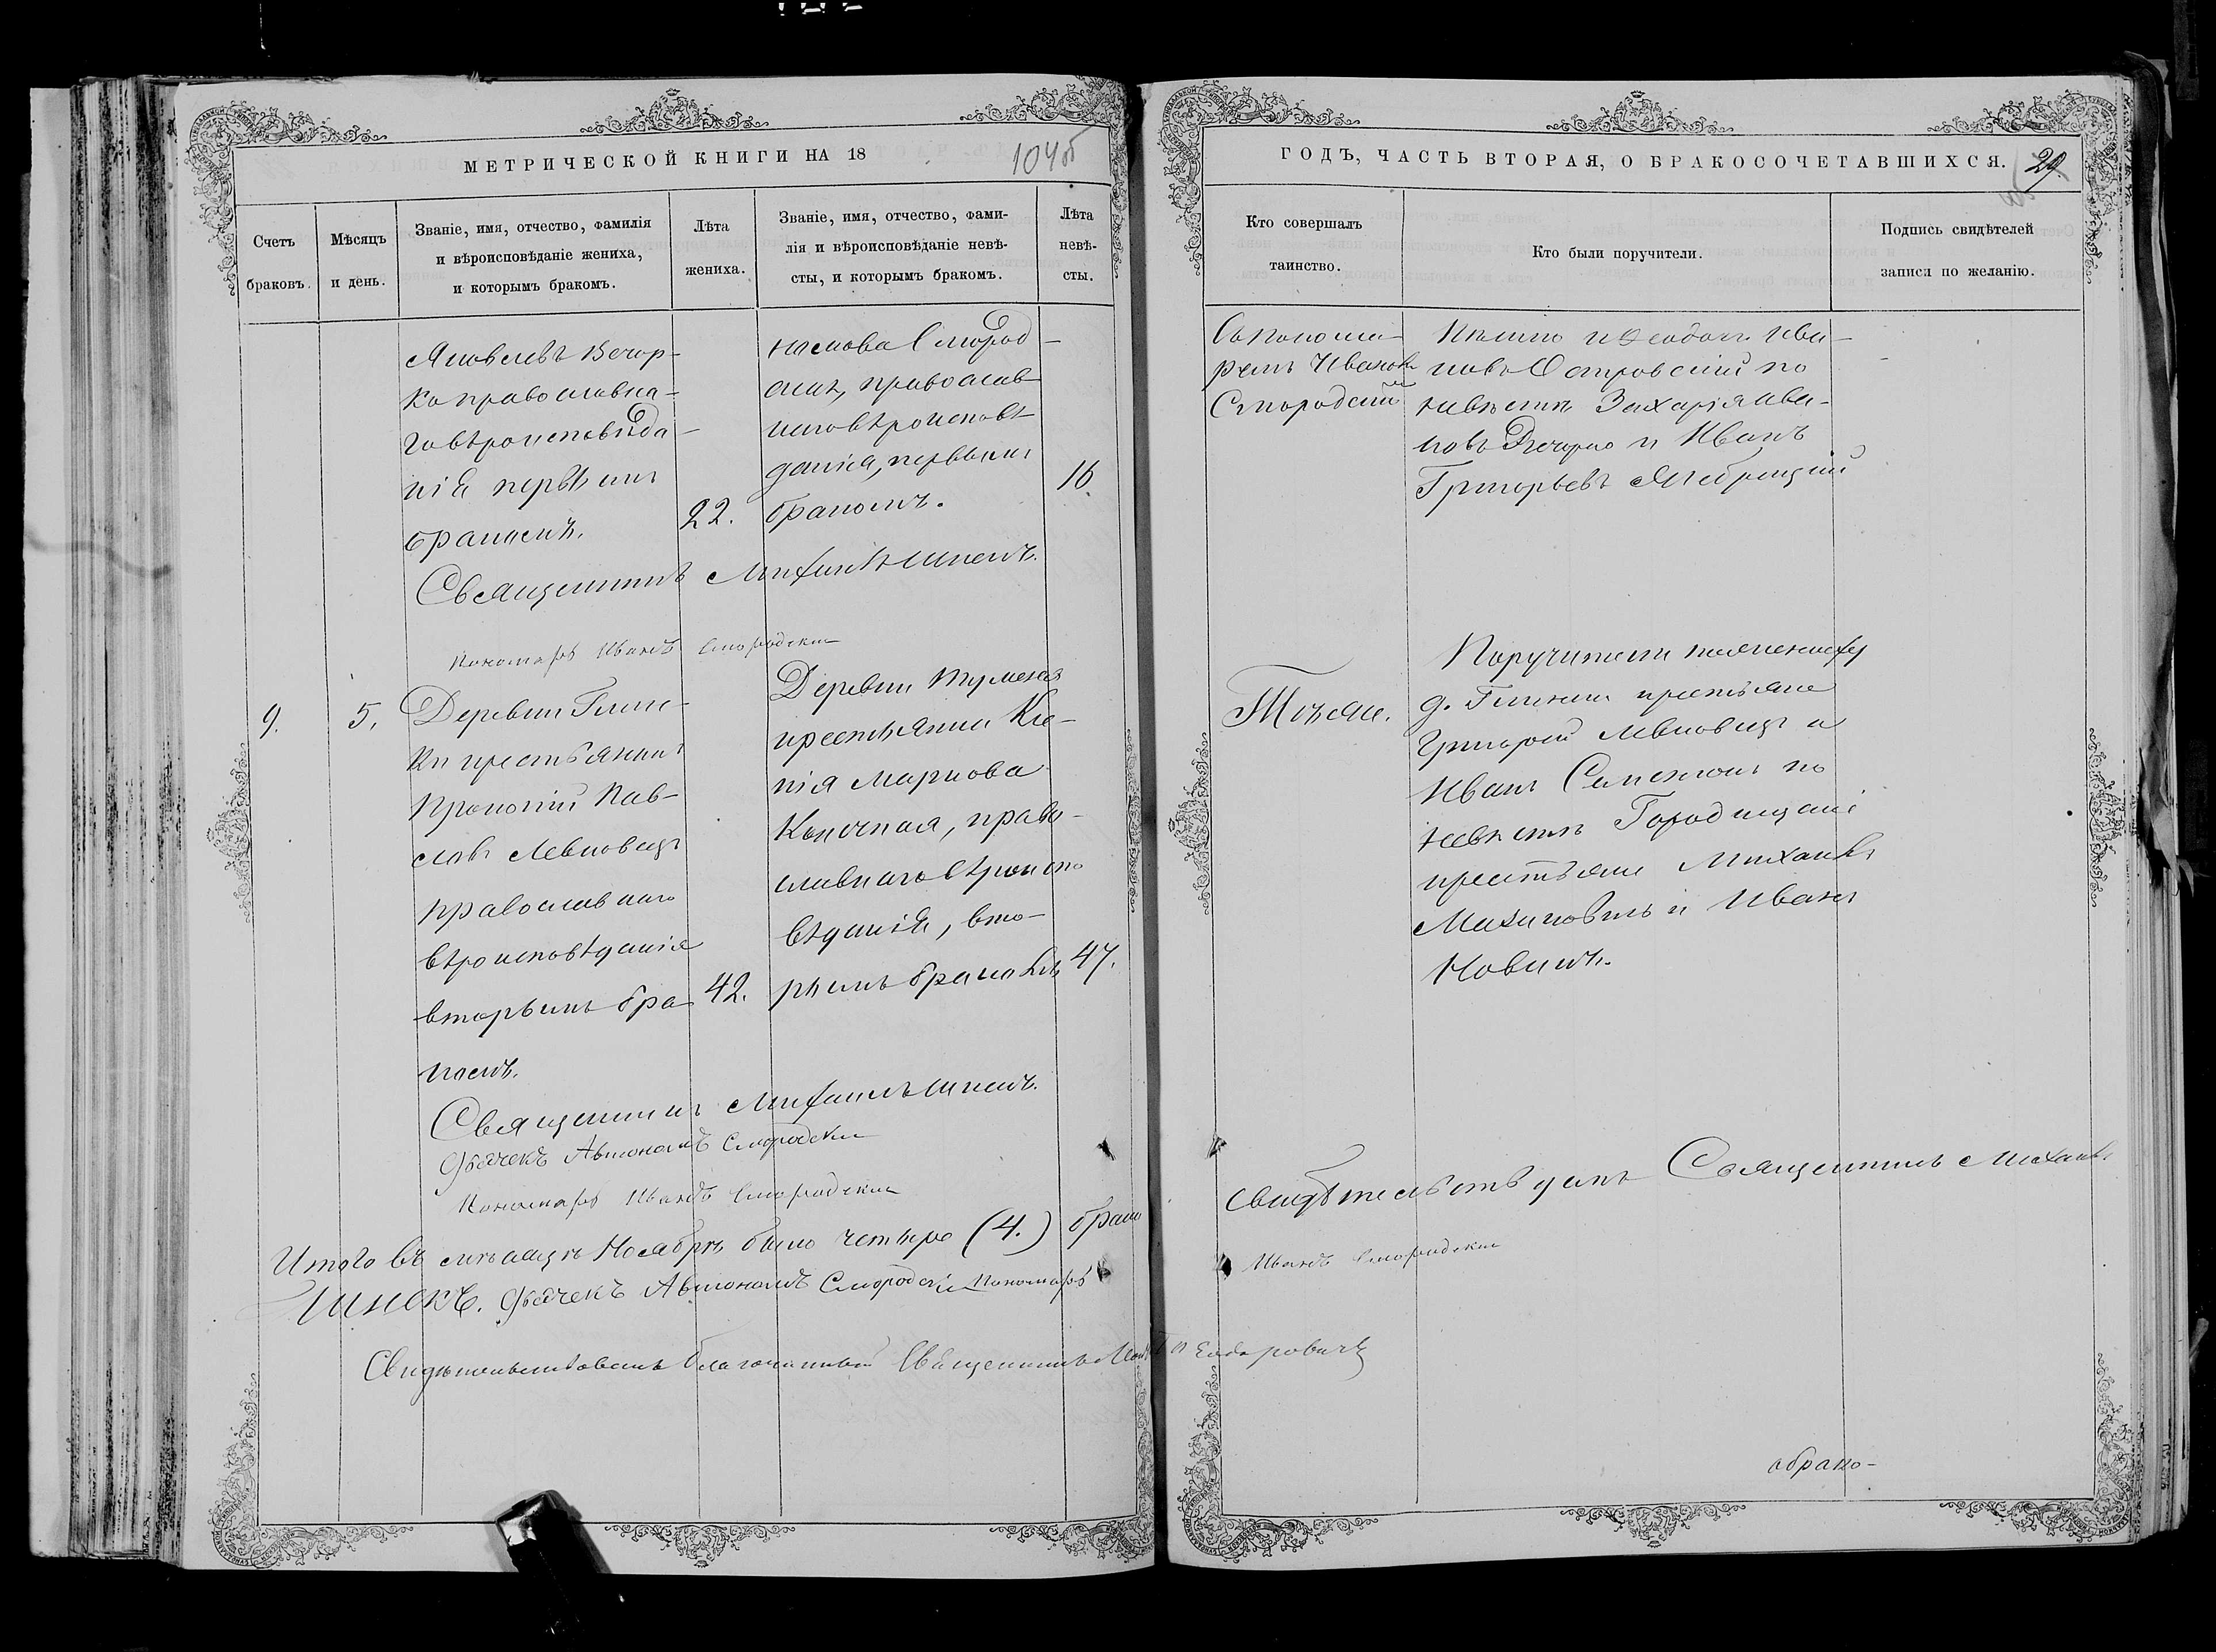 МЕТРИЧЕСКОЙ КНИГИ НА 18
104об
Счетъ браковъ.
Мѣсяцъ и день.
Званіе, имя, отчество, фамилія
и вѣроисповѣданіе жениха,
и которымъ бракомъ.
Лѣта
жениха.
Званіе, имя, отчество, фами-
лія и вѣроисповѣданіе невѣ-
сты, и которымъ бракомъ.
Лѣта
невѣ-
сты.
Яковлевъ Вечор-
ко православна-
го вѣроисповѣда-
нія первымъ
бракомъ.
22.
Смород-
православ-
наго вѣроисповѣ-
данія, первымъ
бракомъ.
16
Священникъ Михаилъ Шнекъ.
Пономарь Иванъ Смородскій
9.
5.
Деревни Глин-
ки крестьянинъ
Прокопій Пав-
ловъ Левковецъ
православнаго
вѣроисповѣданія
вторымъ бра-
комъ.
42.
Деревни
крестьянка Ксе-
нія Маркова
православнаго вѣроиспо
вѣданія, вто-
рымъ бракомъ
47.
Священникъ Михаилъ Шнекъ.
Дьячекъ Автономъ Смородскій
Пономарь Иванъ Смородскій
Итого въ мѣсяцѣ Ноябрѣ было четыре (4.) брака
Шнекъ. Дьячекъ Автономъ Смородскій Пономарь
Свидѣтельствовалъ Благочинный Священникъ
ГОДЪ, ЧАСТЬ ВТОРАЯ, О БРАКОСОЧЕТАВШИХСЯ.
29.
Кто совершалъ
таинство.
Кто были поручители.
Подпись свидѣтелей
записи по желанію.
Съ понома-
ремъ Иваномъ
Смородскимъ
и Ѳеодоръ Ива-
новъ Островскій по
невѣстѣ Захарія Ива-
новъ и Иванъ
Григорьевъ
Тѣже.
Поручители по женихѣ
д. Глинки крестьяне
Григорій Левковецъ и
Иванъ по
невѣстѣ
крестьяне Михаилъ
и Иванъ
Новикъ.
Свидѣтельствуемъ Священникъ Михаилъ
Иванъ Смородскій